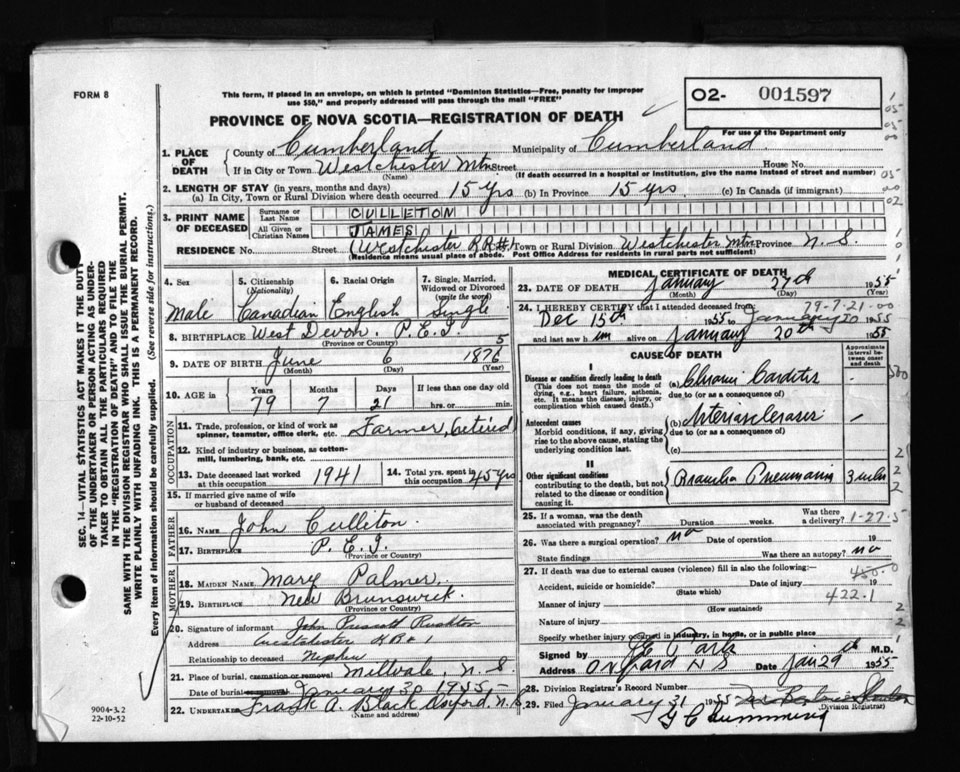 FORM 8
This form, if placed in an envelope, on which is printed "Dominion Statistics—Free, penalty for improper
use $50," and properly addressed will pass through the mail "FREE"
O2- 001597
For use of the Department only
PROVINCE OF NOVA SCOTIA—REGISTRATION OF DEATH
1. PLACE OF DEATH
County of Cumberland Municipality of Cumberland
If in City or Town Westchester Mtn Street House No.
(Name) (If death occurred in a hospital or institution, give the name instead of street and number)
2. LENGTH OF STAY (in years, months and days)
(a) In City, Town or Rural Division where death occurred 15 yrs (b) In Province 15 yrs. (c) In Canada (if immigrant)
3. PRINT NAME OF DECEASED
Surname or Last Name CULLETON
All Given or Christian Names JAMES
RESIDENCE No. Street (Westchester RR#1) Town or Rural Division Westchester Mtn Province N.S.
(Residence means usual place of abode. Post Office Address for residents in rural parts not sufficient)
4. Sex
Male
5. Citizenship (Nationality)
Canadian
6. Racial Origin
English
7. Single, Married, Widowed or Divorced (write the word)
Single
8. BIRTHPLACE West Devon, P.E.I.
(Province or Country)
5
9. DATE OF BIRTH June 6 1876
(Month) (Day) (Year)
10. AGE in
Years Months Days If less than one day old
79 7 21 hrs. or min.
OCCUPATION
11. Trade, profession, or kind of work as spinner, teamster, office clerk, etc. Farmer, retired
12. Kind of industry or business, as cotton-mill, lumbering, bank, etc.
13. Date deceased last worked at this occupation 1941
14. Total yrs. spent in this occupation 45 yrs
15. If married give name of wife or husband of deceased
FATHER
16. NAME John Culliton
17. BIRTHPLACE P.E.I.
(Province or Country)
MOTHER
18. MAIDEN NAME Mary Palmer
19. BIRTHPLACE New Brunswick
(Province or Country)
20. Signature of informant John Prescott Rushton
Address Westchester RR 1
Relationship to deceased Nephew
21. Place of burial, cremation or removal Millvale, N.S.
Date of burial January 30 1945
22. UNDERTAKER Frank A. Black Oxford, N.S.
(Name and address)
MEDICAL CERTIFICATE OF DEATH
23. DATE OF DEATH January 27th 1955
(Month) (Day) (Year)
24. I HEREBY CERTIFY that I attended deceased from: 79-7-21-00
Dec 15th 1955 to January 20 1955
and last saw him alive on January 20th 1955
CAUSE OF DEATH
Approximate interval between onset and death
I
Disease or condition directly leading to death
(This does not mean the mode of dying, e.g., heart failure, asthenia, etc. It means the disease, injury, or complication which caused death.)
(a) Chronic Carditis
due to (or as a consequence of)
Antecedent causes
Morbid conditions, if any, giving rise to the above cause, stating the underlying condition last.
(b) Arteriosclerosis
due to (or as a consequence of)
(c)
II
Other significant conditions contributing to the death, but not related to the disease or condition causing it.
Broncho Pneumonia 3 wks
25. If a woman, was the death associated with pregnancy? Duration weeks. Was there a delivery? 1-27-5
26. Was there a surgical operation? no Date of operation 19
State findings Was there an autopsy? no
27. If death was due to external causes (violence) fill in also the following:—
Accident, suicide or homicide? Date of injury 19
(State which)
450.0
422.1
Manner of injury
(How sustained)
Nature of injury
Specify whether injury occurred in industry, in home, or in public place
Signed by Park M.D.
Address Oxford N S Date Jan 29 1955
28. Division Registrar's Record Number
29. Filed January 31 1955
(Division Registrar)
G C Cumming
SEC. 14—VITAL STATISTICS ACT MAKES IT THE DUTY
OF THE UNDERTAKER OR PERSON ACTING AS UNDERTAKER
TO OBTAIN ALL THE PARTICULARS REQUIRED
IN THE "REGISTRATION OF DEATH" AND TO FILE THE
SAME WITH THE DIVISION REGISTRAR WHO SHALL ISSUE THE BURIAL PERMIT.
WRITE PLAINLY WITH UNFADING INK. THIS IS A PERMANENT RECORD.
Every item of information should be carefully supplied. (See reverse side for instructions.)
9004-3.2
22-10-52